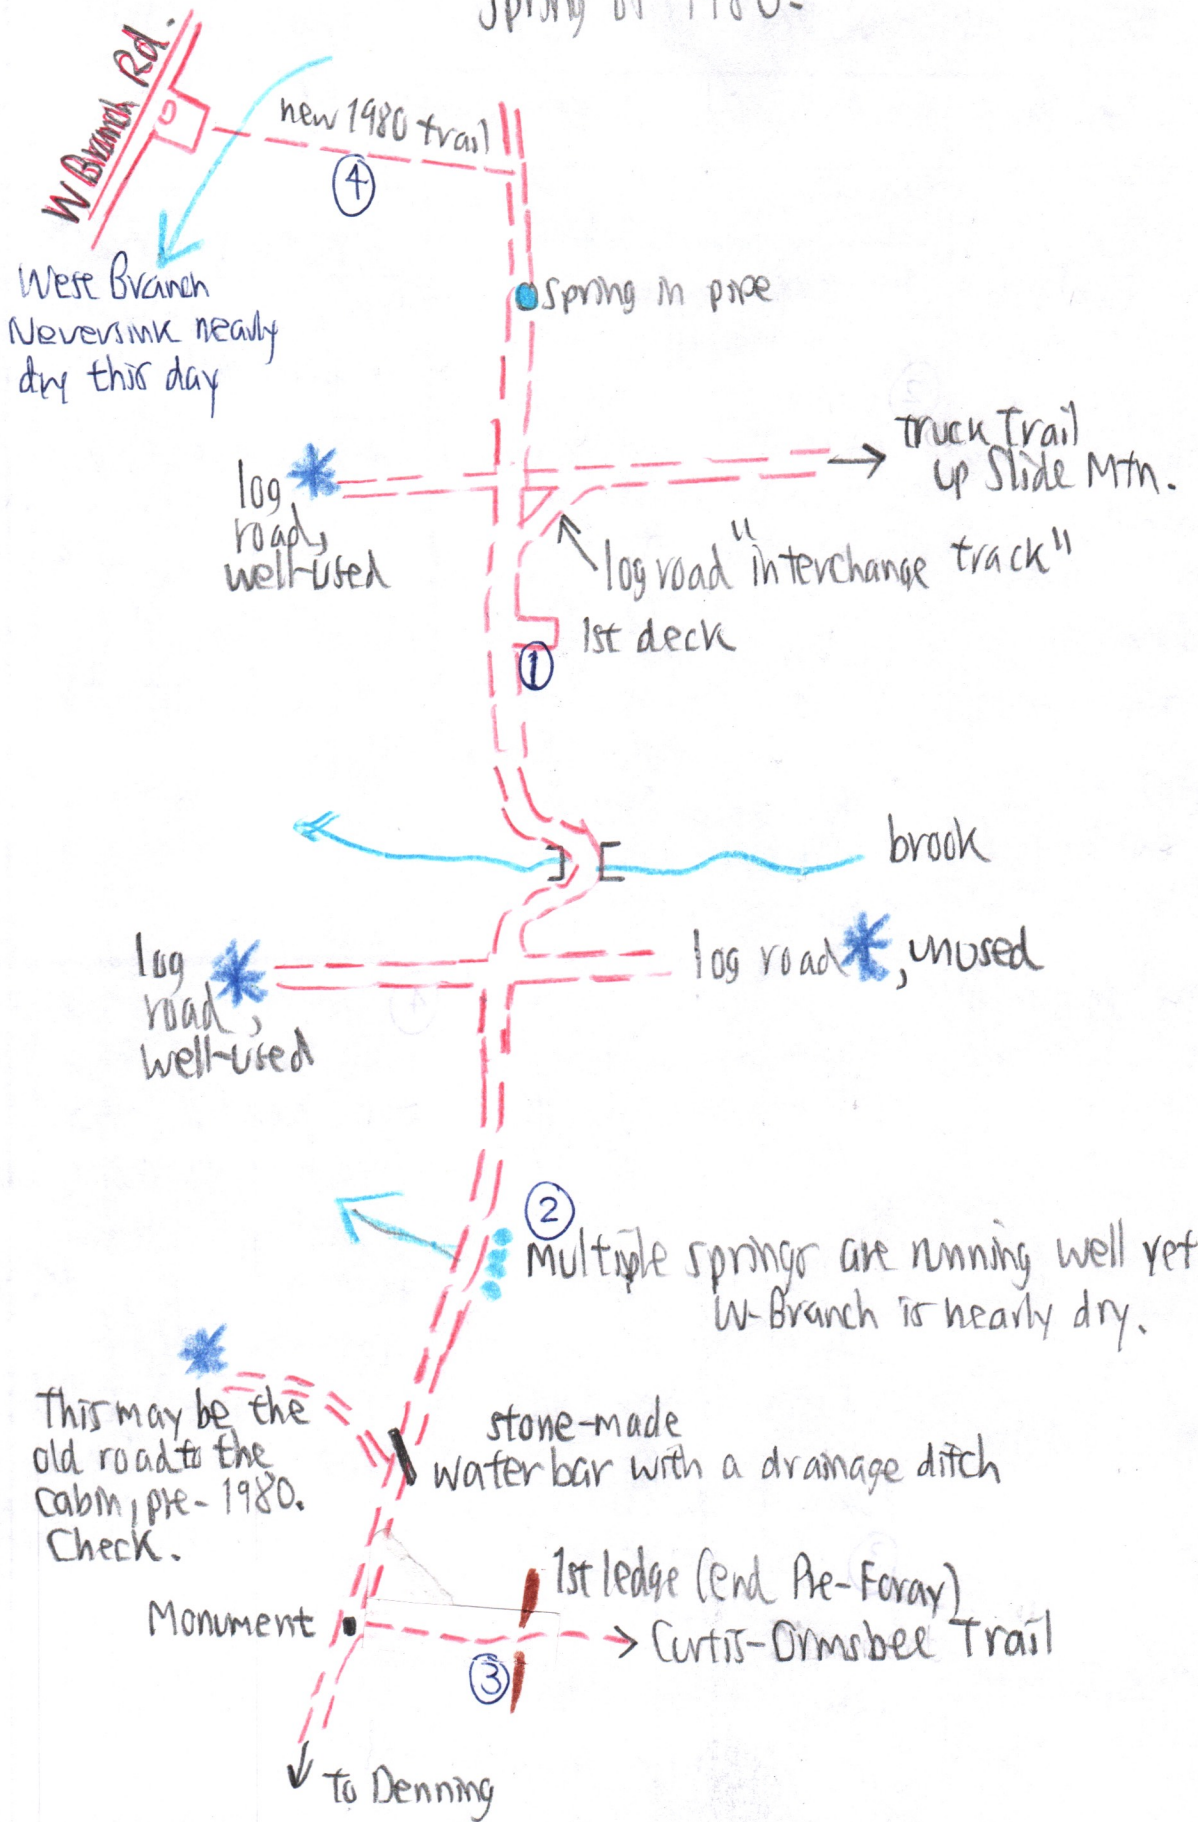 Spring of 1980.
W Branch Rd.
new 1980 trail
4
West Branch
Neversink nearly
dry this day
spring in pipe
truck Trail
up Slide Mtn.
log
road,
well-used
log road "interchange track"
1st deck
1
brook
log
road,
well-used
log road , unused
2
Multiple springs are running well yet
W-Branch is nearly dry.
This may be the
old road to the
cabin, pre-1980.
Check.
stone-made
waterbar with a drainage ditch
1st ledge (end Pre-Foray)
Monument
Curtis-Ormsbee Trail
3
To Denning